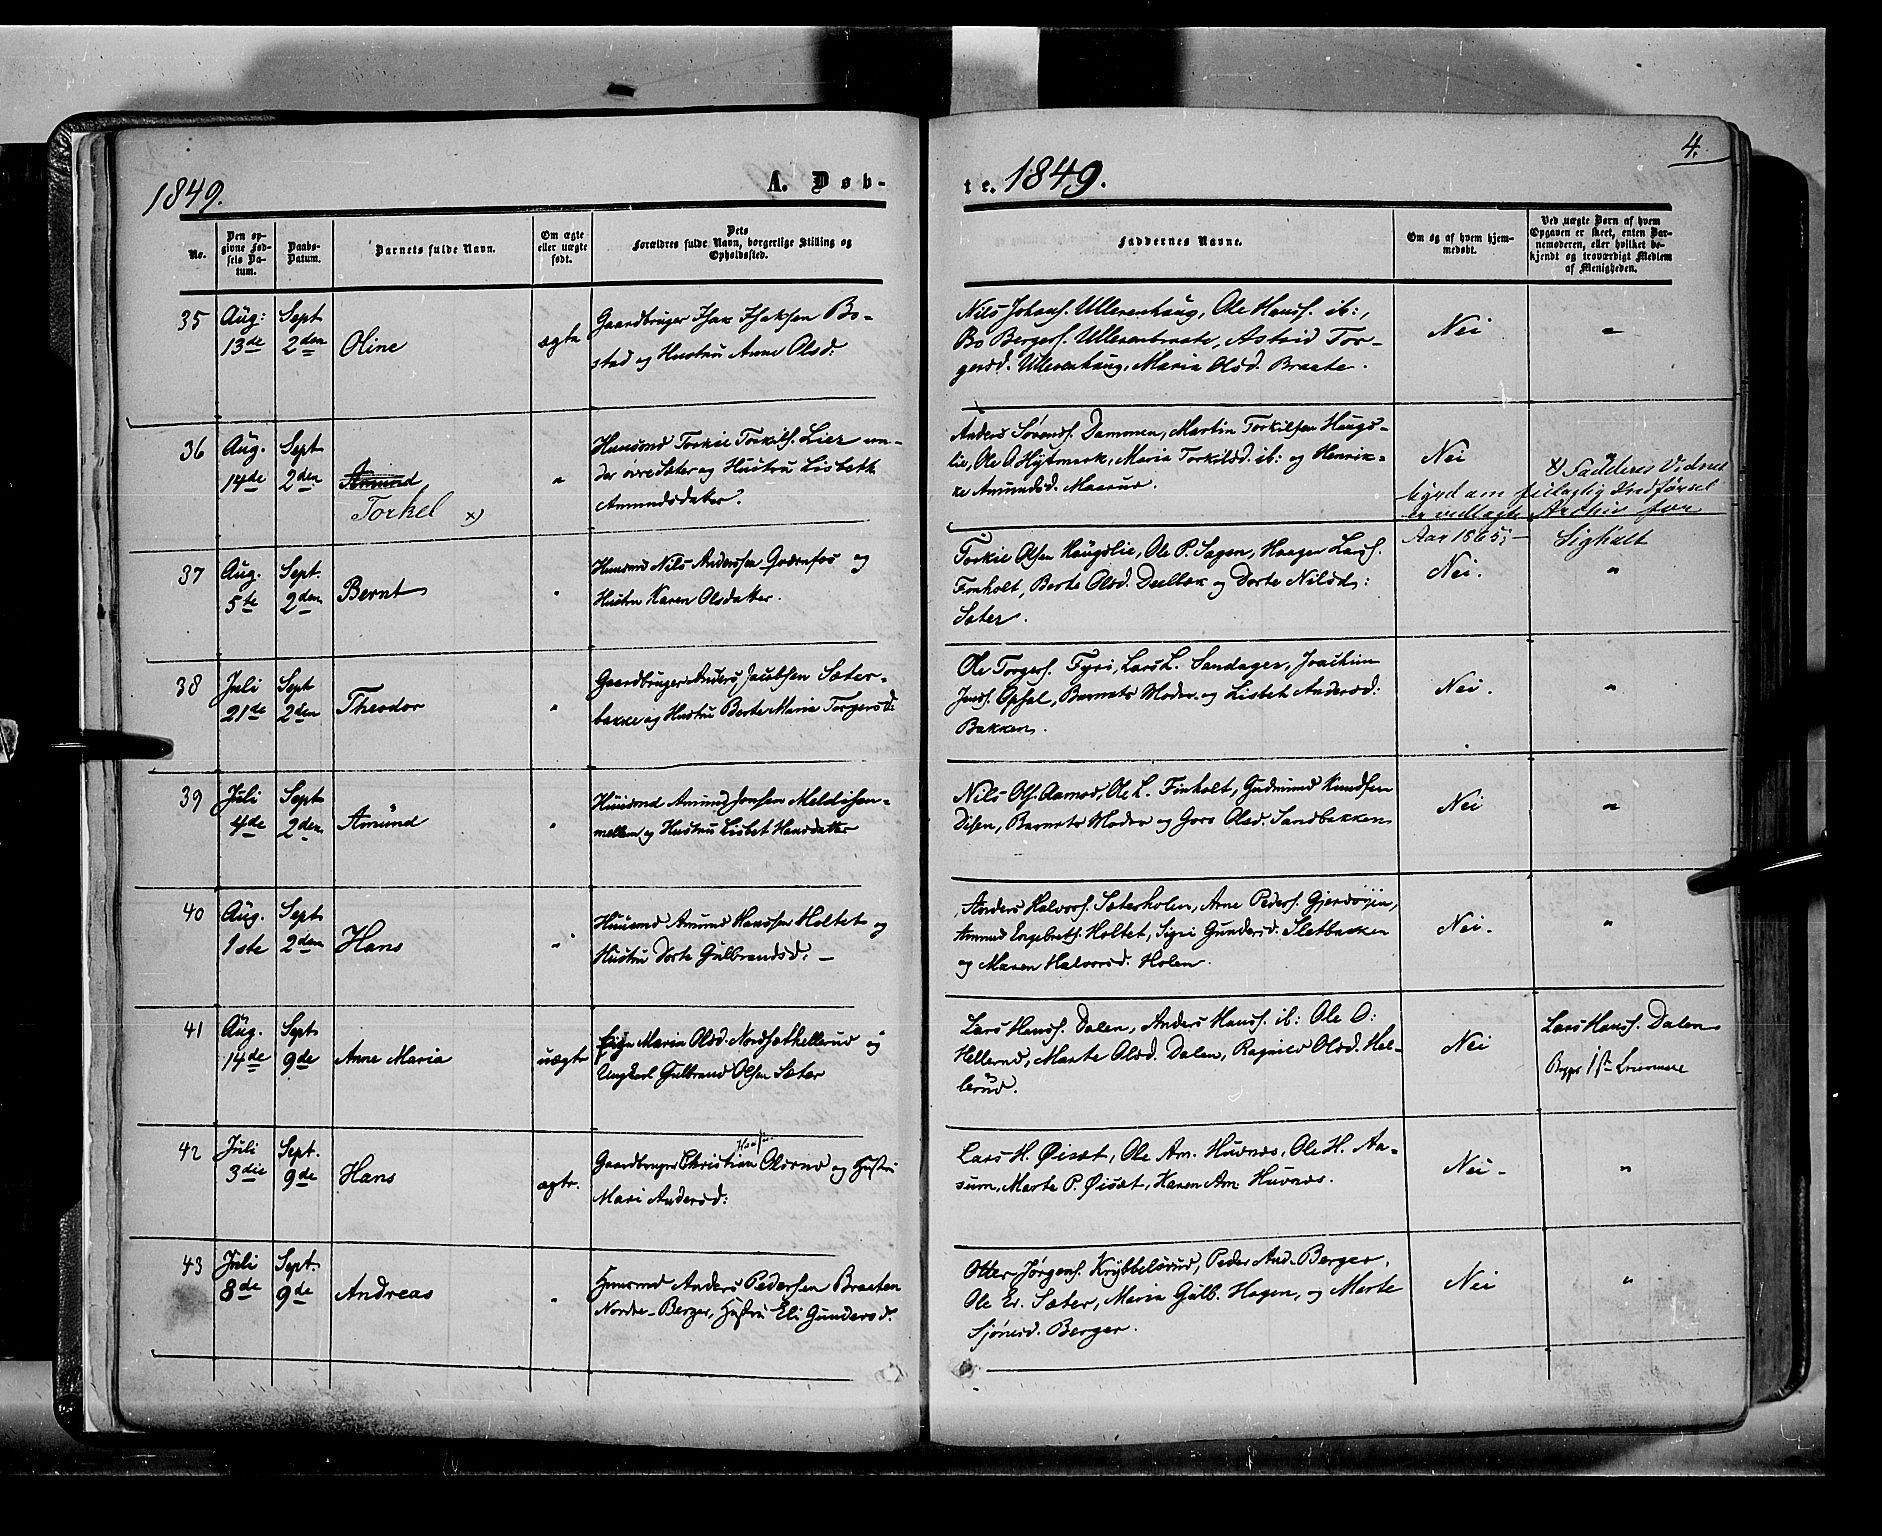 4.
1849.
A. Døb-
te. 1849.
No.
Den op-
givne Fød-
sels Da-
tum.
Daabs-
Datum.
Barnets fulde Navn.
Om ægte
eller uægte
født.
Dets
Forældres fulde Navn, borgerlige Stilling og
Opholdssted.
Faddernes Navne.
Om og af hvem hjem-
medøbt.
Ved uægte Børn af hvem
Opgaven er skeet, enten Bar-
nemoderen, eller hvilket be-
kjendt og troværdigt Medlem
af Menigheden.
35
Aug:
13de
Sept
2den
Oline
ægte
Gaardbruger Isak Isaksen Bo-
stad og Hustru Anne Olsd:
Nils Johans. Ullerenhaug, Ole Hans. ib:,
Bo Bergers. Ullerenbraate, Astrid Tor-
gersd. Ullerenhaug, Maria Olsd. Braate.
Nei
"
36
Aug.
14de
Sept
2den
Amund
Torkel x)
"
Huusmd Torkil Torkils. Lier un-
der øvre Sæter og Hustru Lisbeth
Amundsdatter.
Anders Sørens. Dammen, Martin Torkilsen Haugs-
lie, Ole O Hytmark, Maria Torkilsd. ib: og Henrik-
ke Amundsd. Maarud.
Nei
"
x) Fadderes Vidnes
byrd om feilagtig Indførsel
er vedlagte Archiv for
Aar 1865;-
Sigholt
37
Aug.
5te
Sept.
2den
Bernt
"
Huusmd Nils Anderssen Godtnfos og
Hustru Karen Olsdatter.
Torkil Olsen Haugslie, Ole P. Sagen, Haagen Lars.
Fonholt, Berte Olsd. Deelbæk og Dorte Nilsd:
Sæter.
Nei.
"
38
Juli
21de
Sept
2den
Theodor
"
Gaardbruger Anders Jacobsen Sæter-
bakke og Hustru Berte Maria Torgersd:
Ole Torgers. Fyri, Lars L. Sandager, Joachim
Jens. Opsal, Barnets Moder og Lisbet Andersd:
Bakken.
Nei.
"
39
Juli
4de
Sept
2den
Amund
"
Huusmd Amund Jonsen Meldisen-
mellem og Hustru Lisbet Hansdatter
Nils Ols. Aamod, Ole L. Finholt, Gudmund Knudsen
Disen, Barnets Moder og Goro Olsd. Sandbakken
Nei
"
40
Aug.
1ste
Sept
2den
Hans
"
Huusmd Amund Hanssen Holtet og
Hustru Dorte Gulbrandsd: -
Anders Halvors. Sæterholen, Arne Peders. Gjerdøjen,
Ammund Engebrets. Holtet, Sigri Gundersd. Sletbakken
og Maren Halvorsd. Holen.
Nei.
"
41
Aug.
14de
Sept
9de
Anne Maria
uægte
Pige Maria Olsd. Nordsæthellerud og
Ungkarl Gulbrand Olsen Sæter
Lars Hans. Dalen, Anders Hans. ib: Ole O:
Hellerud, Marte Olsd. Dalen, Ragnild Olsd. Hel-
lerud.
Nei
Lars Hans. Dalen
Begges 1ste Leiermaal
42
Juli
3die
Sept.
9de
Hans
ægte.
Gaardbruger Christian Hans. Olerud og Hustru
Mari Andersd:
Lars H. Øisæt, Ole Am. Huvnæs, Ole H. Aa-
sum, Marte P. Øisæt, Karen Am. Huvnæs.
Nei-
"
43
Juli
8de
Sept.
9de
Andreas
"
Huusmd Anders Pedersen Braaten
Nordre-Berger, Hustru Eli Gundersd.
Otter Jørgens. Krybbelsrud, Peder And. Berger,
Ole Er. Sæter, Maria Gulb. Hagen, og Marte
Sjønsd. Berger.
Nei
"